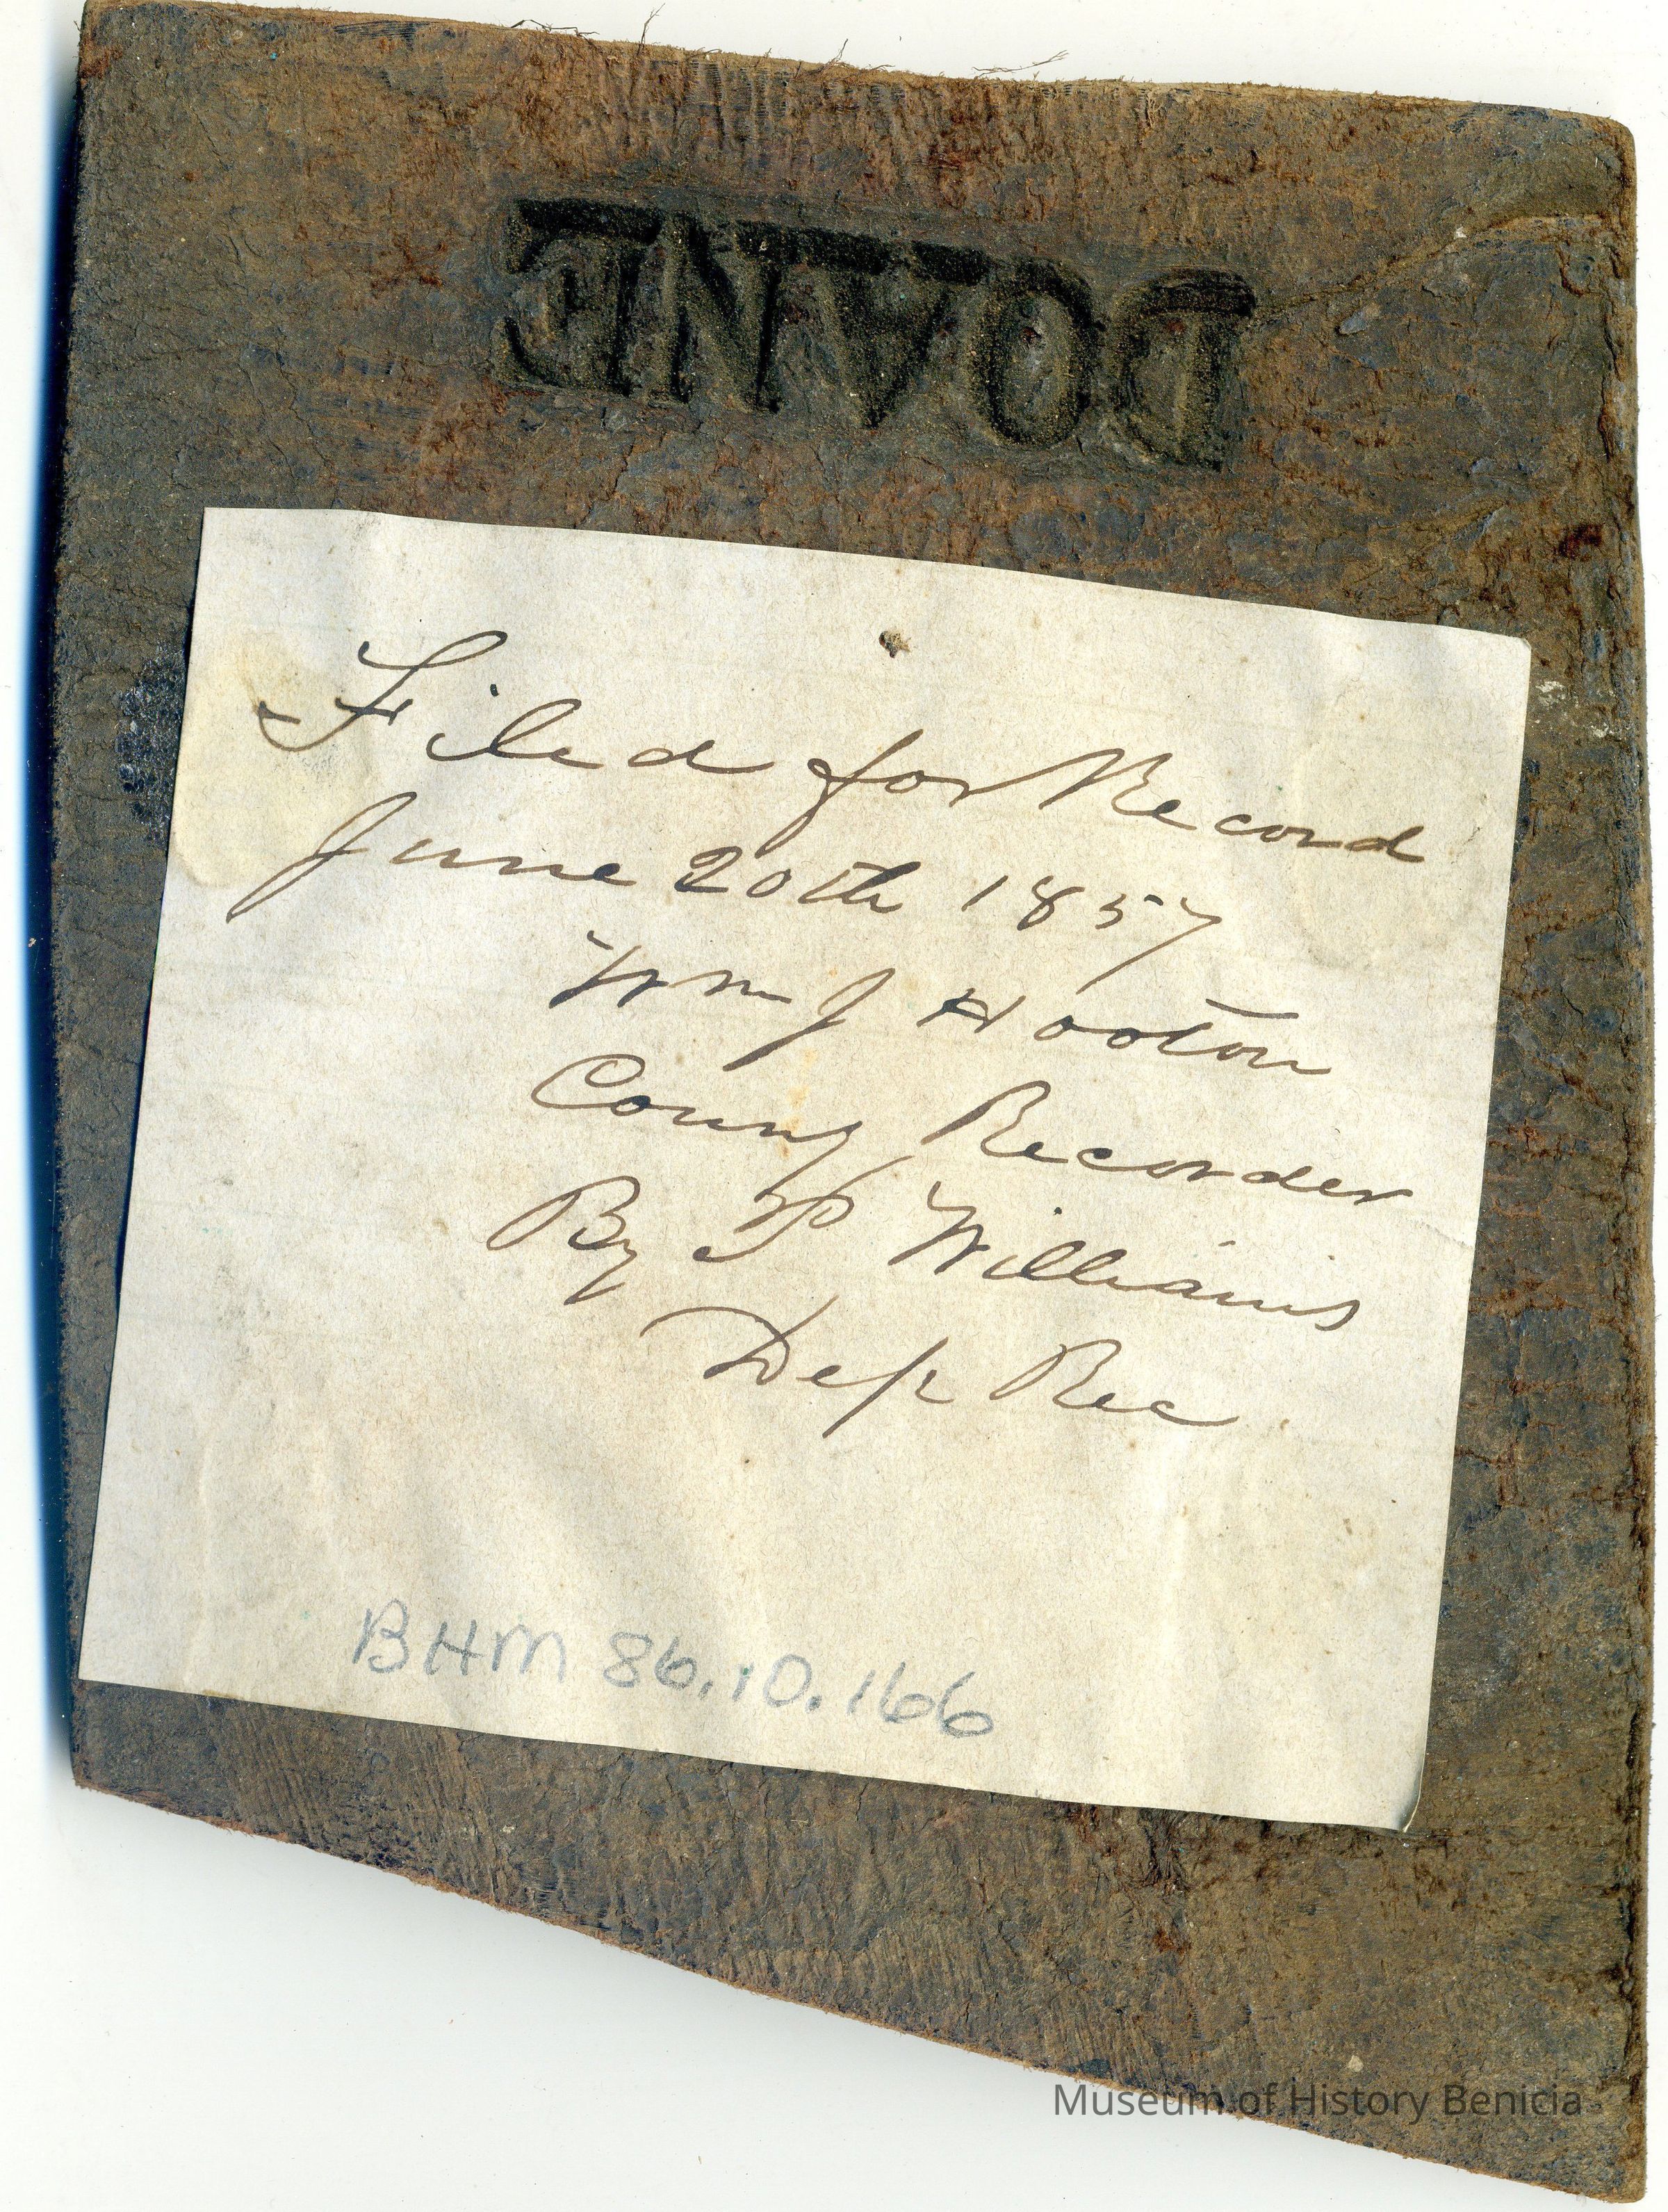 DOANE
Filed for Record
June 20th 1857
Wm J Hooton
County Recorder
By P Williams
Dep Rec
BHM 86.10.166
Museum of History Benicia